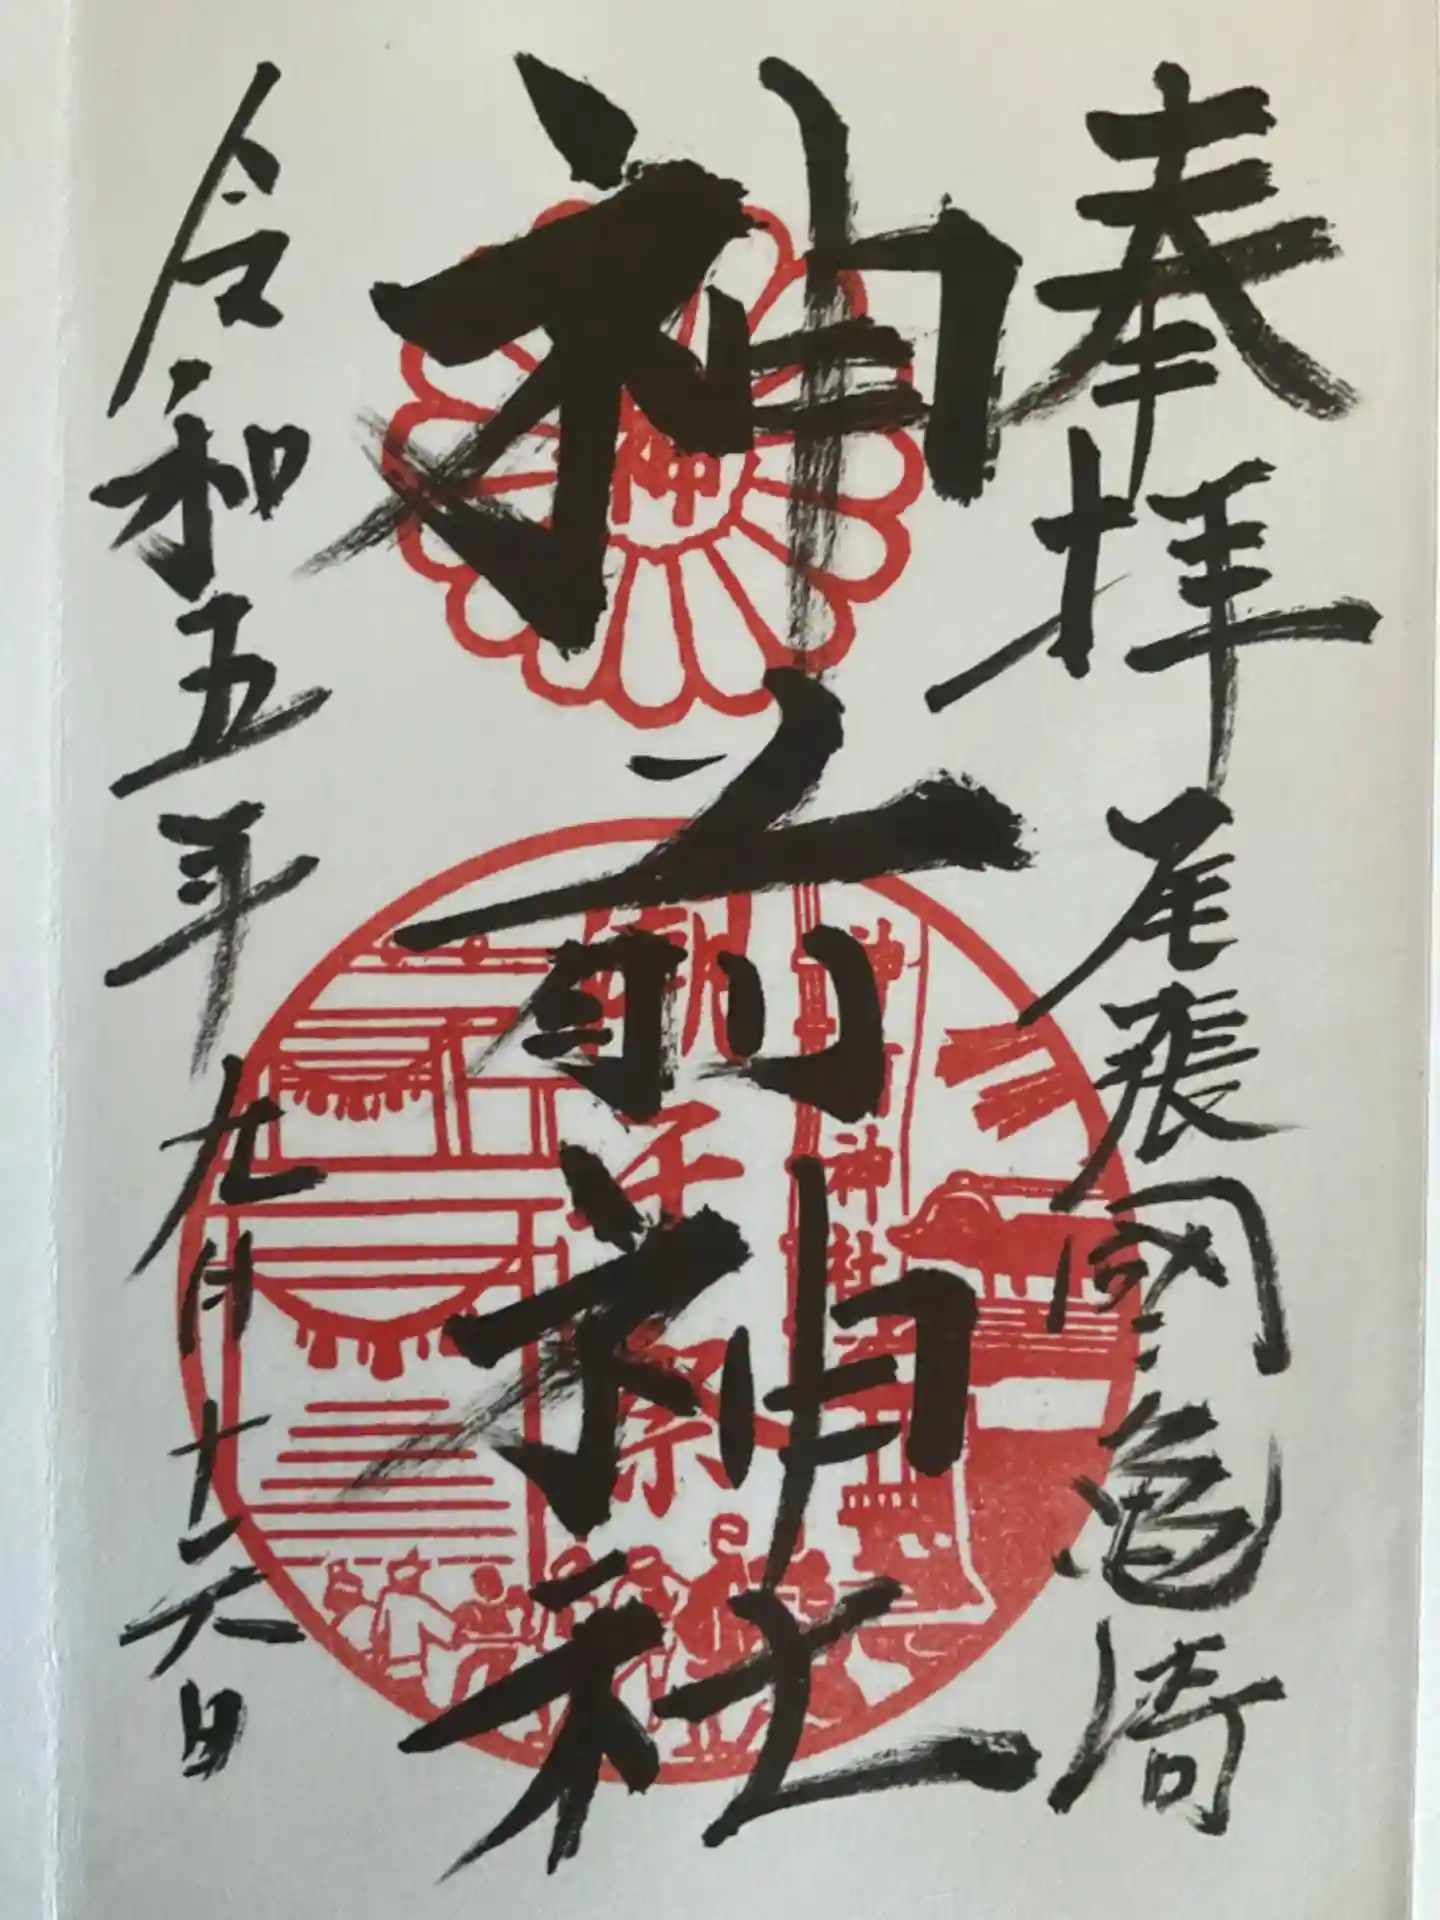 奉拝 尾張國亀崎
神前神社
令和五年九月十六日
神
潮干祭
神前神社